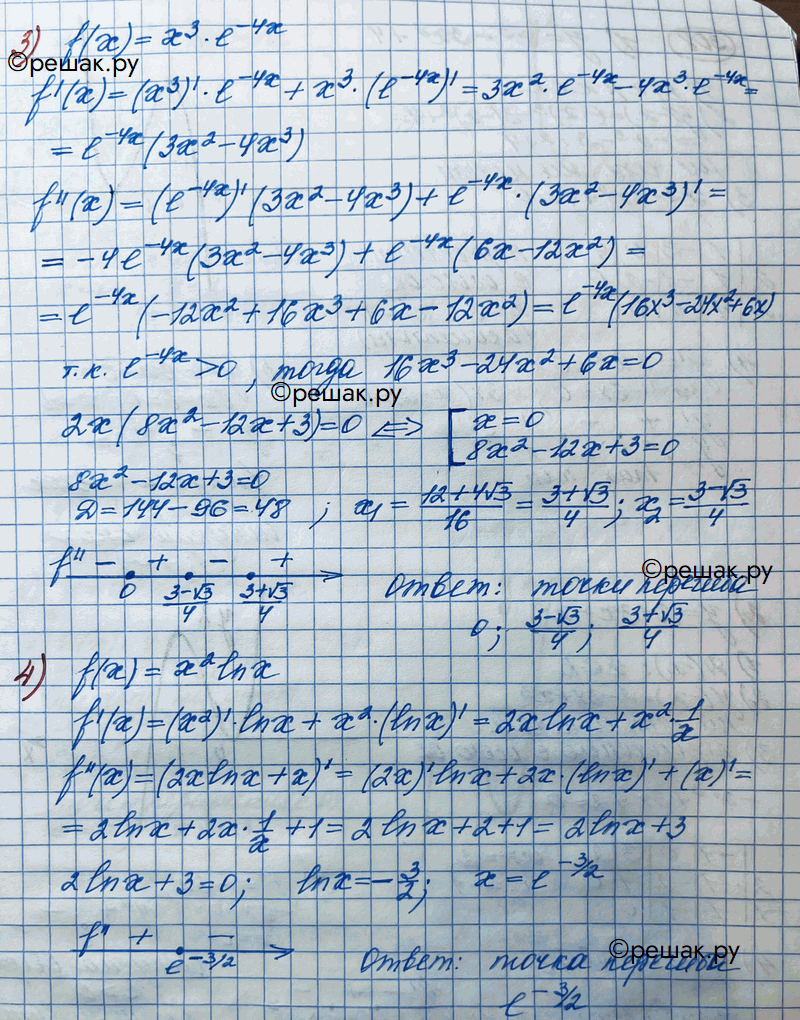 3) f(x) = x³ · e^(-4x)
©решак.ру
f'(x) = (x³)' · e^(-4x) + x³ · (e^(-4x))' = 3x² · e^(-4x) - 4x³ · e^(-4x) =
= e^(-4x) (3x² - 4x³)
f''(x) = (e^(-4x))' (3x² - 4x³) + e^(-4x) · (3x² - 4x³)' =
= -4e^(-4x) (3x² - 4x³) + e^(-4x) (6x - 12x²) =
= e^(-4x) (-12x² + 16x³ + 6x - 12x²) = e^(-4x) (16x³ - 24x² + 6x)
т.к. e^(-4x) > 0, тогда 16x³ - 24x² + 6x = 0
©решак.ру
2x(8x² - 12x + 3) = 0 <=> [ x = 0
8x² - 12x + 3 = 0
8x² - 12x + 3 = 0
D = 144 - 96 = 48 ; x₁ = (12+4√3)/16 = (3+√3)/4 ; x₂ = (3-√3)/4
©решак.ру
f'' - + - +
0 (3-√3)/4 (3+√3)/4
Ответ: точки перегиба
0; (3-√3)/4; (3+√3)/4
4) f(x) = x² ln x
f'(x) = (x²)' · ln x + x² · (ln x)' = 2x ln x + x² · 1/x
f''(x) = (2x ln x + x)' = (2x)' ln x + 2x · (ln x)' + (x)' =
= 2 ln x + 2x · 1/x + 1 = 2 ln x + 2 + 1 = 2 ln x + 3
2 ln x + 3 = 0; ln x = -3/2; x = e^(-3/2)
f'' + -
e^(-3/2)
©решак.ру
Ответ: точка перегиба
e^(-3/2)